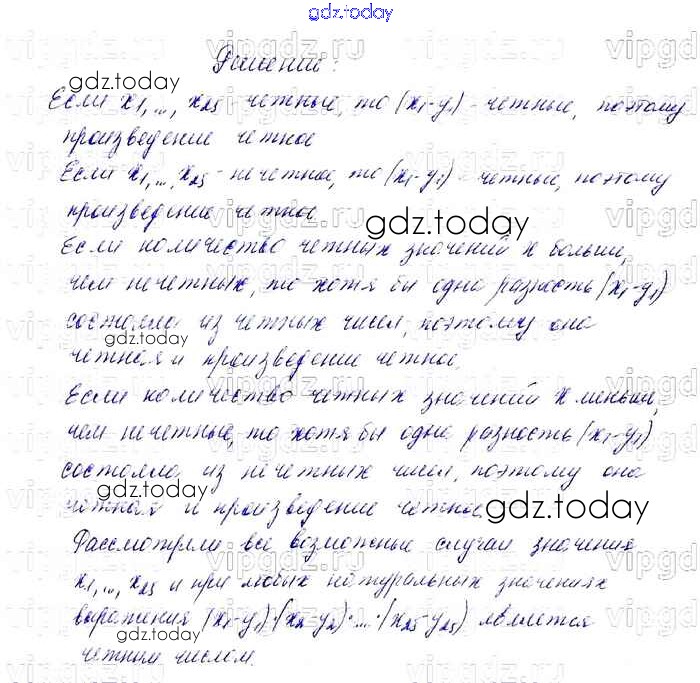 gdz.today
Решение:
Если x1,..., x25 - четные, то (x1-y1) - четные, поэтому
произведение четное
Если x1,..., x25 - нечетное, то (x1-y1) - четные, поэтому
произведение четное.
Если количество четных значений x больше,
чем нечетных, то хотя бы одна разность (x1-y1)
состояла из четных чисел, поэтому она
четная и произведение четное.
Если количество четных значений x меньше,
чем нечетные, то хотя бы одна разность (x1-y1)
состояла из нечетных чисел, поэтому она
четная и произведение четное.
Рассмотрели все возможные случаи значения
x1,..., x25 и при любых натуральных значениях
выражения (x1-y1)·(x2-y2)·...·(x25-y25) является
четным числом.
gdz.today
gdz.today
gdz.today
gdz.today
gdz.today
gdz.today
vipgdz.ru